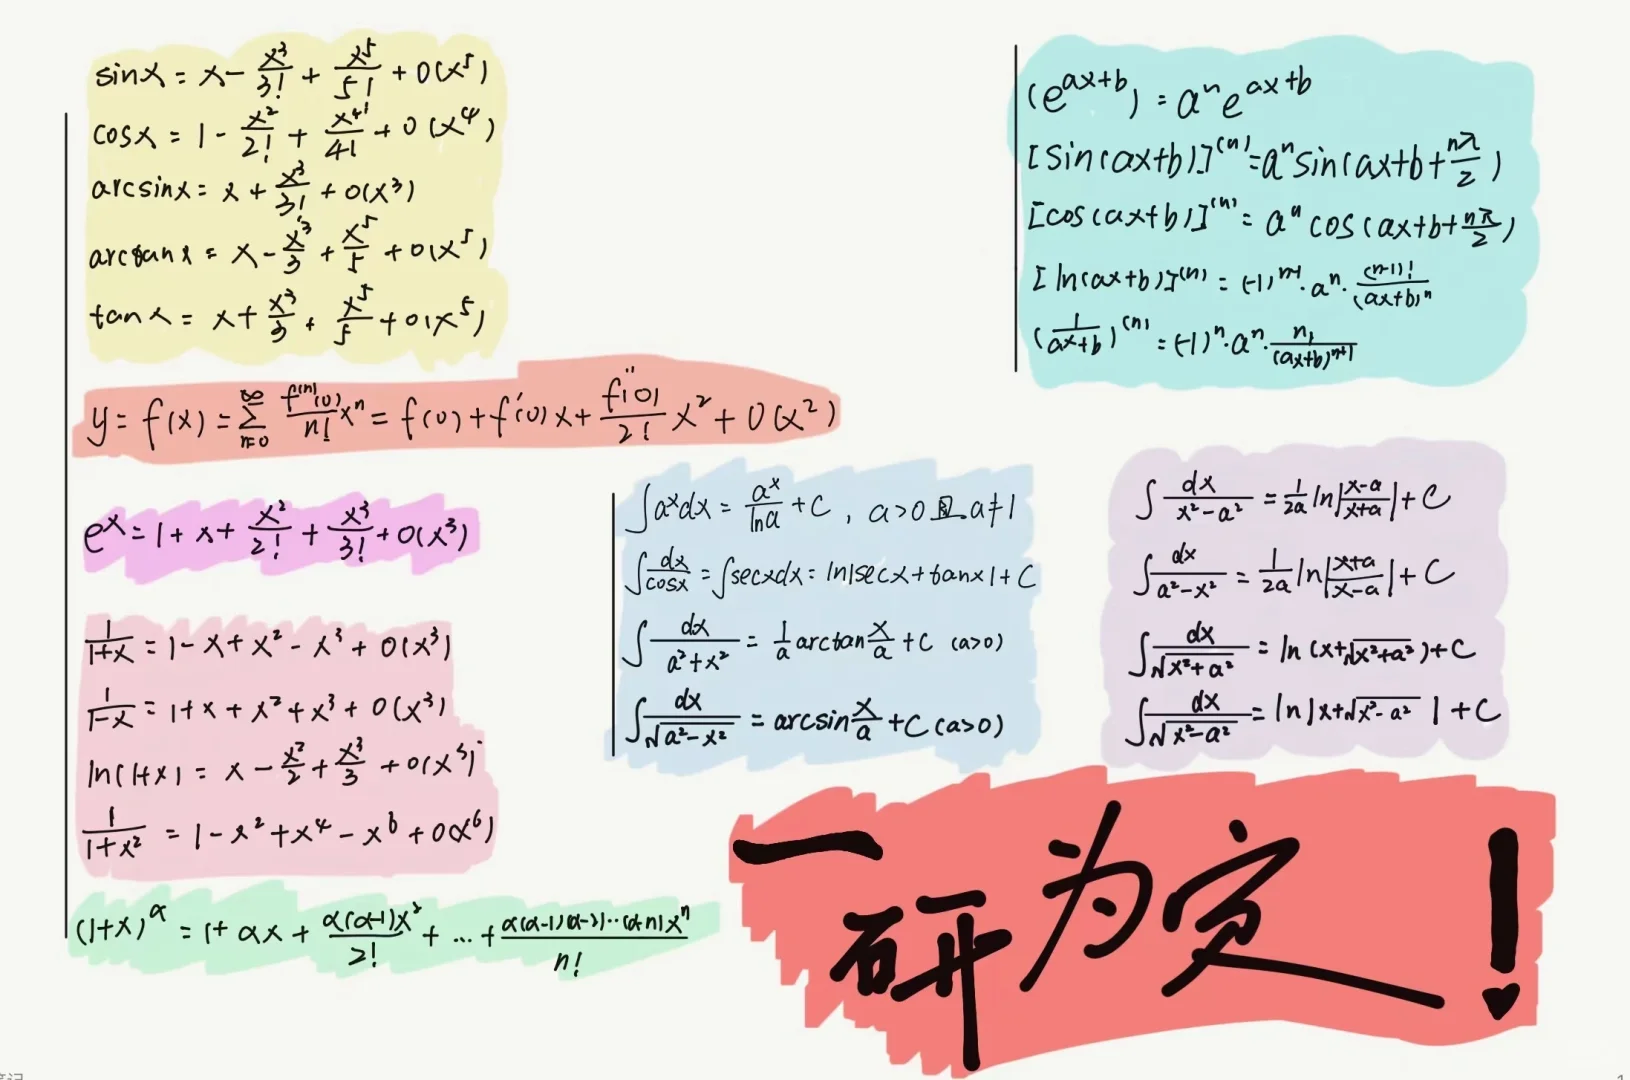 sinx = x - x³/3! + x⁵/5! + o(x⁵)
cosx = 1 - x²/2! + x⁴/4! + o(x⁴)
arcsinx = x + x³/3! + o(x³)
arctanx = x - x³/3 + x⁵/5 + o(x⁵)
tanx = x + x³/3 + x⁵/5 + o(x⁵)
y = f(x) = ∑_{n=0}^{∞} f⁽ⁿ⁾(0)/n! xⁿ = f(0) + f'(0)x + f''(0)/2! x² + o(x²)
eˣ = 1 + x + x²/2! + x³/3! + o(x³)
1/(1+x) = 1 - x + x² - x³ + o(x³)
1/(1-x) = 1 + x + x² + x³ + o(x³)
ln(1+x) = x - x²/2 + x³/3 + o(x³)
1/(1+x²) = 1 - x² + x⁴ - x⁶ + o(x⁶)
(1+x)^α = 1 + αx + α(α-1)x²/2! + ... + α(α-1)(α-2)...(α-n)xⁿ/n!
(e^{ax+b}) = aⁿe^{ax+b}
[sin(ax+b)]⁽ⁿ⁾ = aⁿsin(ax+b+nπ/2)
[cos(ax+b)]⁽ⁿ⁾ = aⁿcos(ax+b+nπ/2)
[ln(ax+b)]⁽ⁿ⁾ = (-1)ⁿ⁻¹·aⁿ·(n-1)!/(ax+b)ⁿ
(1/(ax+b))⁽ⁿ⁾ = (-1)ⁿ·aⁿ·n!/(ax+b)ⁿ⁺¹
∫aˣdx = aˣ/lna + C, a>0且a≠1
∫dx/cosx = ∫secxdx = ln|secx+tanx| + C
∫dx/(a²+x²) = 1/a arctan x/a + C (a>0)
∫dx/√(a²-x²) = arcsin x/a + C (a>0)
∫dx/(x²-a²) = 1/2a ln|(x-a)/(x+a)| + C
∫dx/(a²-x²) = 1/2a ln|(x+a)/(x-a)| + C
∫dx/√(x²+a²) = ln(x+√(x²+a²)) + C
∫dx/√(x²-a²) = ln|x+√(x²-a²)| + C
一研为定!